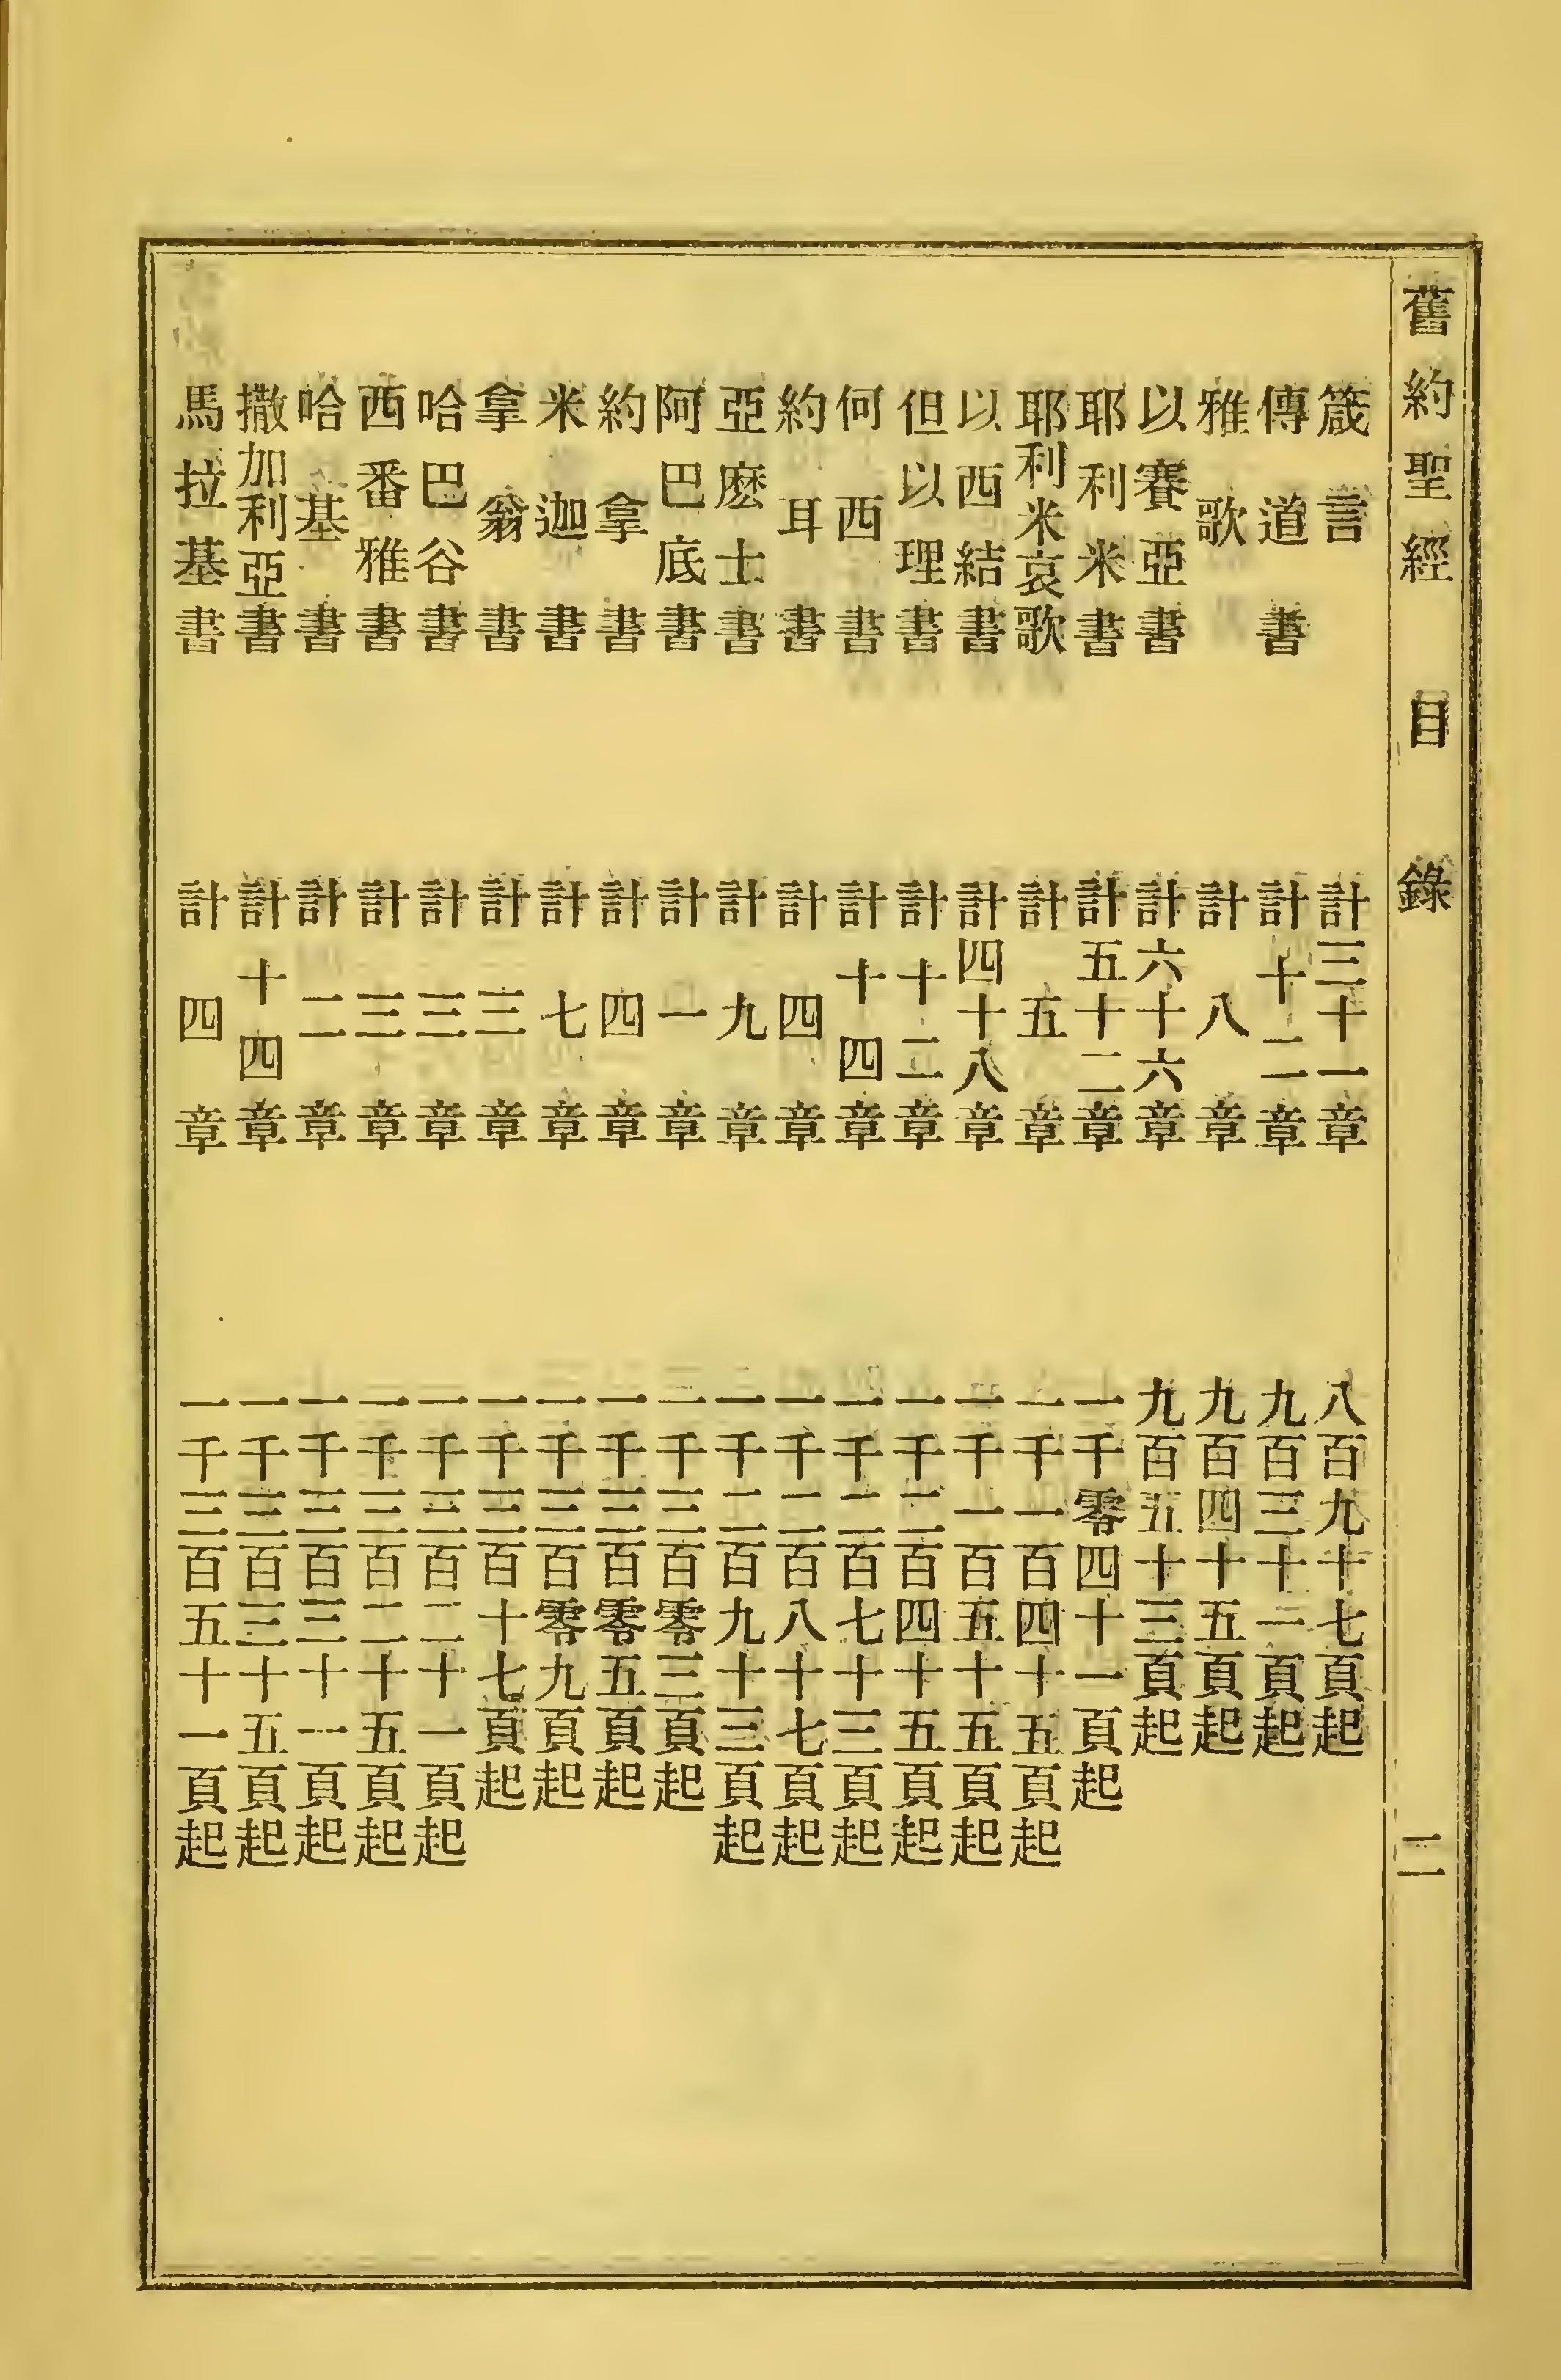 舊約聖經 目錄 二
箴言 計三十一章 八百九十七頁起
傳道書 計十二章 九百三十一頁起
雅歌 計八章 九百四十五頁起
以賽亞書 計六十六章 九百五十三頁起
耶利米書 計五十二章 一千零四十一頁起
耶利米哀歌 計五章 一千一百四十五頁起
以西結書 計四十八章 一千一百五十五頁起
但以理書 計十二章 一千二百四十五頁起
何西書 計十四章 一千二百七十三頁起
約耳書 計四章 一千二百八十七頁起
亞麽士書 計九章 一千二百九十三頁起
阿巴底書 計一章 一千三百零三頁起
約拿書 計四章 一千三百零五頁起
米迦書 計七章 一千三百零九頁起
拿翁書 計三章 一千三百十七頁起
哈巴谷書 計三章 一千三百二十一頁起
西番雅書 計三章 一千三百二十五頁起
哈基書 計二章 一千三百三十一頁起
撒加利亞書 計十四章 一千三百三十五頁起
馬拉基書 計四章 一千三百五十一頁起